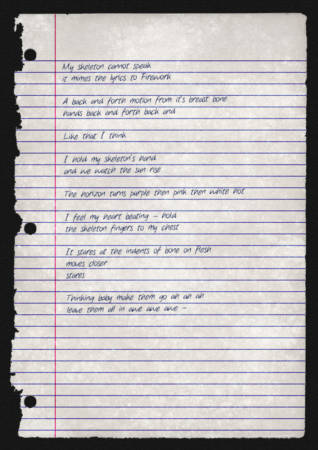 My skeleton cannot speak
it mimes the lyrics to Firework
A back and forth motion from it's breast bone
hands back and forth back and
Like that I think
I hold my skeleton's hand
and we watch the sun rise
The horizon turns purple then pink then white hot
I feel my heart beating - hold
the skeleton fingers to my chest
It stares at the indents of bone on flesh
moves closer
stares
Thinking baby make them go ah ah ah
leave them all in awe awe awe -